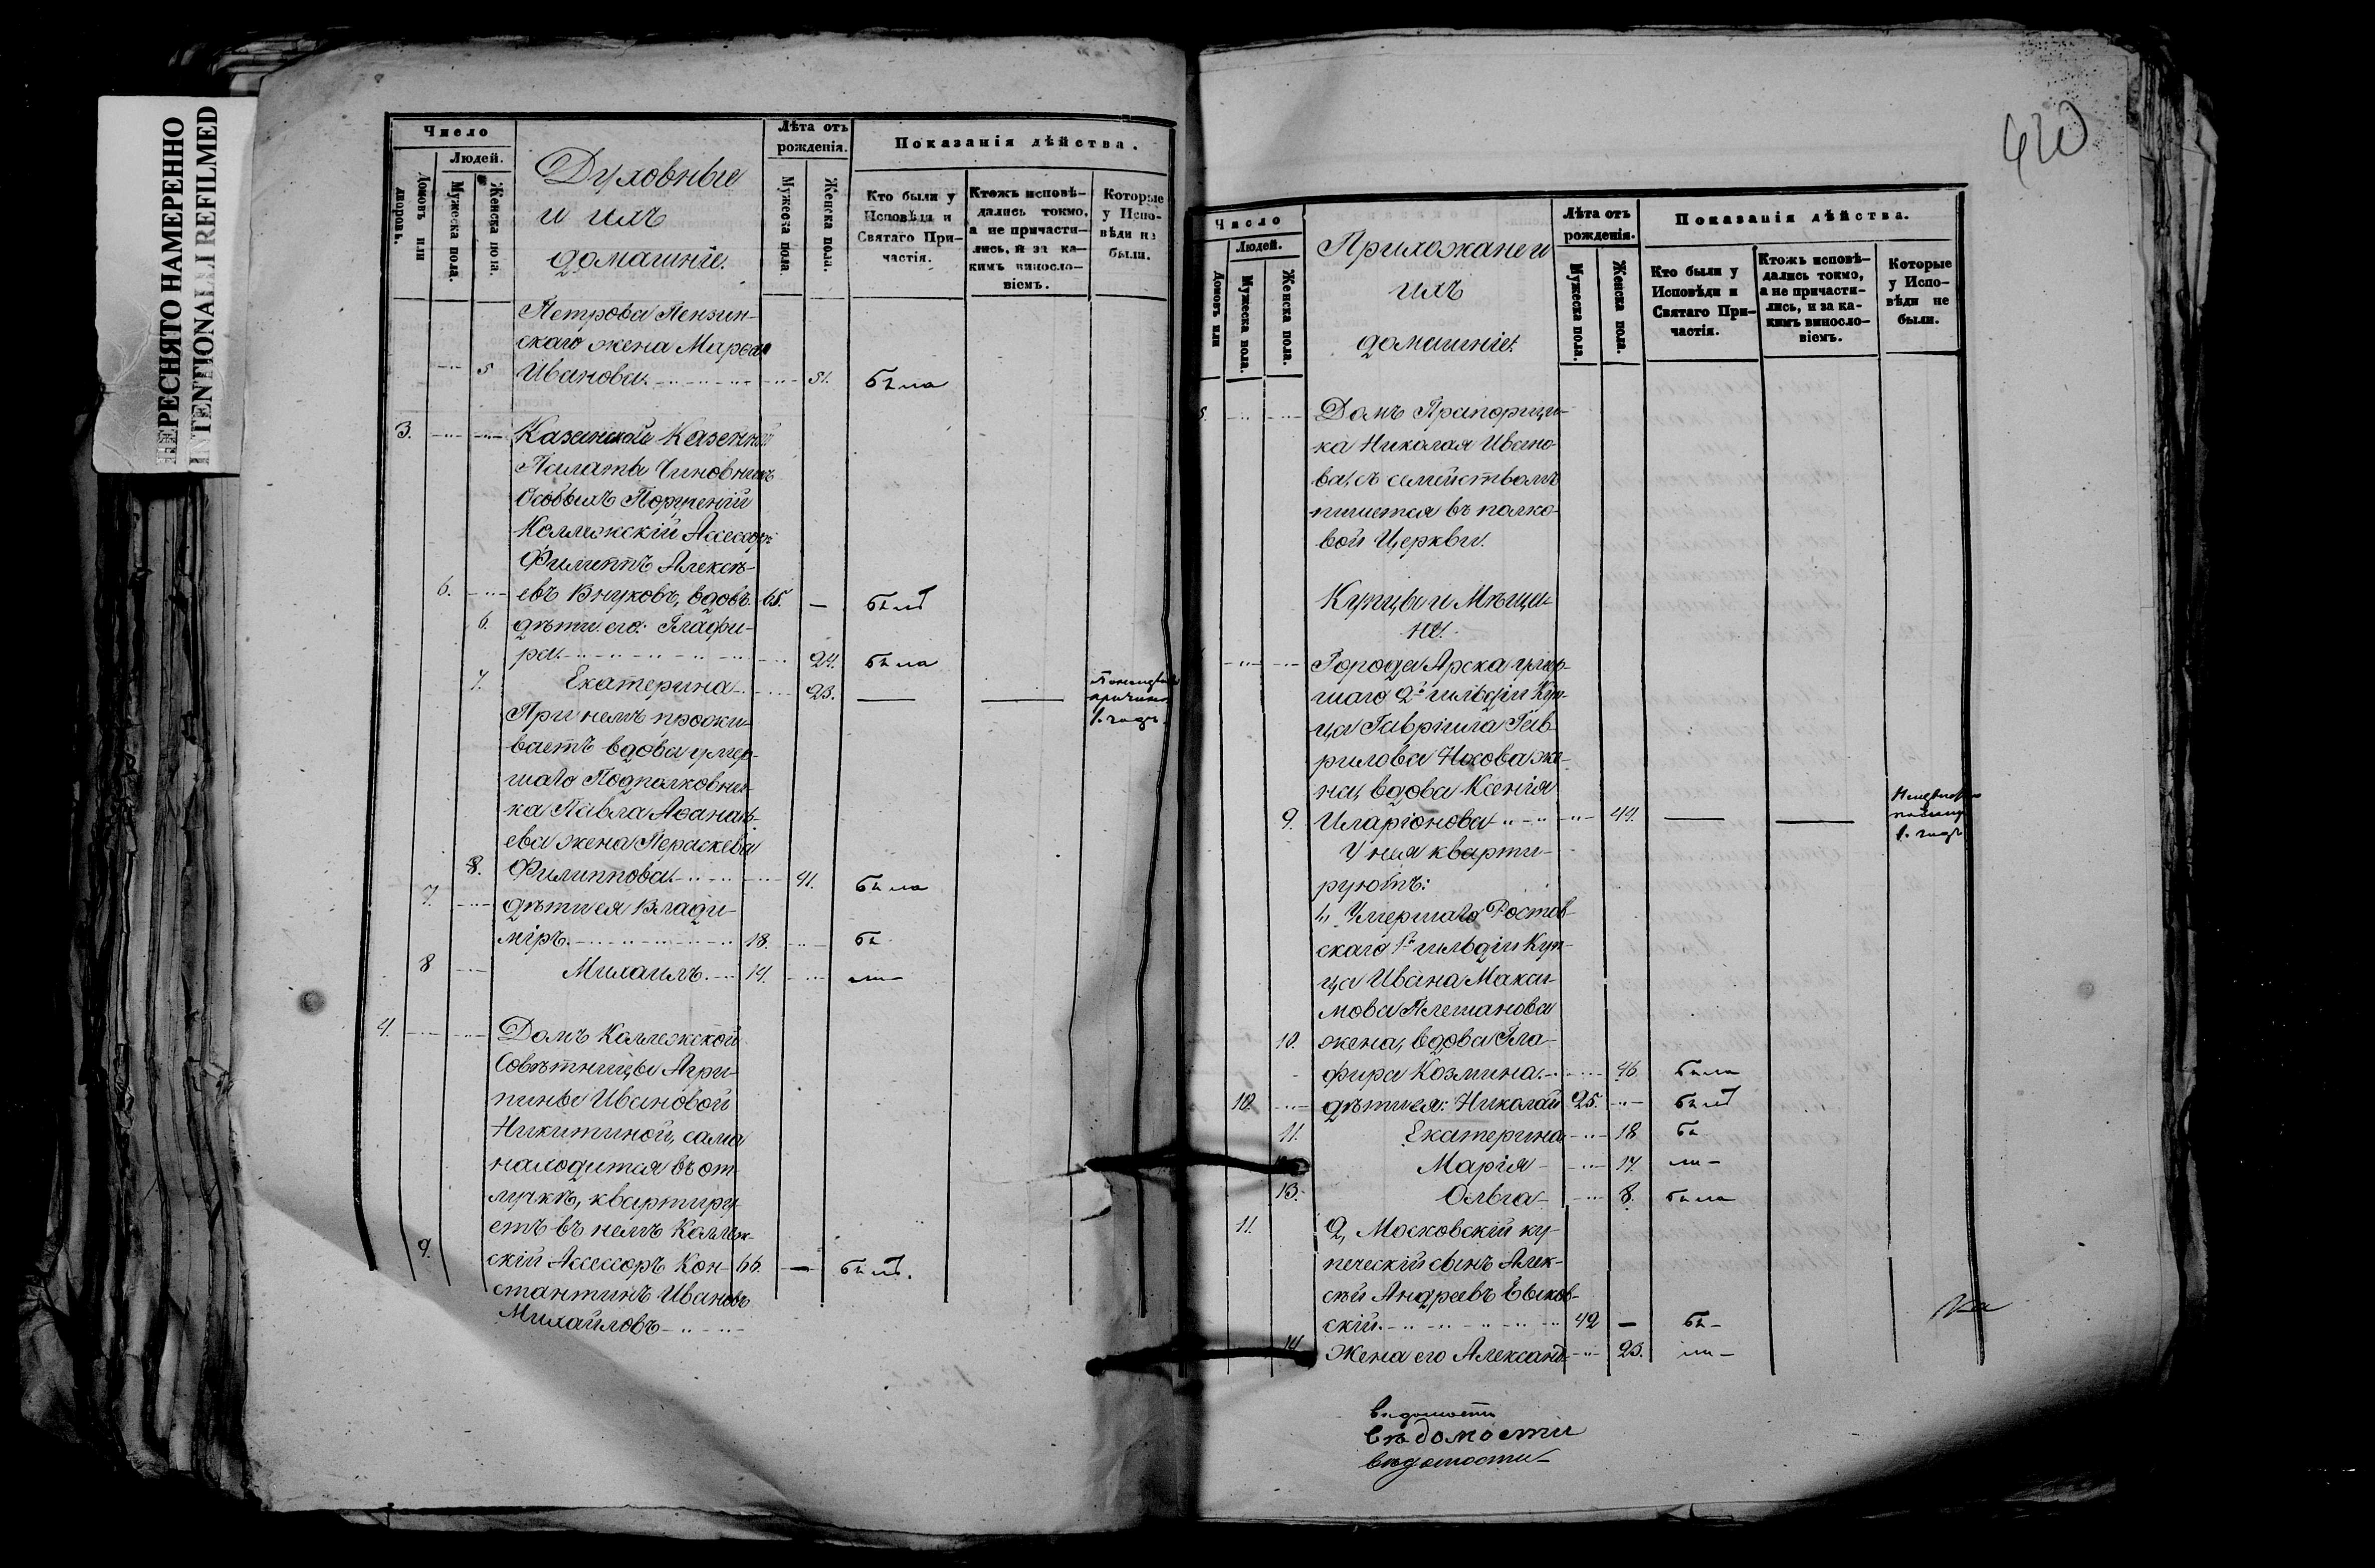 ПЕРЕСНЯТО НАМЕРЕННО
INTENTIONALLY REFILMED
Число
Людей.
Домовъ или дворовъ.
Мужеска пола.
Женска пола.
Духовные
и ихъ
домашніе.
Лѣта отъ
рожденія.
Мужеска пола.
Женска пола.
Показанія дѣйства.
Кто были у
Исповѣди и
Святаго При-
частія.
Ктожъ исповѣ-
дались токмо,
а не причасти-
лись, и за ка-
кимъ винослo-
віемъ.
Которые
у Испо-
вѣди не
были.
Петрова Пензин-
скаго жена Марѳа
5 Иванова. 51. была
3. Казанской Казенной
Палаты Чиновникъ
Особыхъ Порученій
Коллежскій Ассессоръ
Филиппъ Алексѣ-
6. евъ Внуковъ, вдовъ. 65. — былъ
6. дѣти его: Глафи-
ра. 24. была
7. Екатерина 23. — —
1. годъ.
При немъ прожи-
ваетъ вдова умер-
шаго Подполковни-
ка Павла Аѳанась-
ева жена Пераскева
8. Филиппова. 41. была
7. дѣти ея Влади-
міръ. 18. бы
8 Михаилъ. 14. ли
4. Домъ Коллежской
Совѣтницы Агри-
пины Ивановой
Никитиной, сама
находится въ от-
лучкѣ, квартиру-
етъ въ немъ Коллеж-
9. скій Ассессоръ Кон- 66. — былъ.
стантинъ Ивановъ
Михайловъ
Число
Людей.
Домовъ или
Мужеска пола.
Женска пола.
Прихожане и
ихъ
домашніе.
Лѣта отъ
рожденія.
Мужеска пола.
Женска пола.
Показанія дѣйства.
Кто были у
Исповѣди и
Святаго При-
частія.
Ктожъ исповѣ-
дались токмо,
а не причасти-
лись, и за ка-
кимъ винослo-
віемъ.
Которые
у Испо-
вѣди не
были.
5. Домъ Прапорщи-
ка Николая Ивано-
ва, съ семействомъ
пишется въ полко-
вой Церкви.
Купцы и Мѣща-
не.
Города Арска умер-
шаго 2й гильдіи Куп-
ца Гавріила Гав-
рилова Носова же-
на, вдова Ксенія
9. Иларіонова 44. — —
1. годъ
У нея кварти-
руютъ:
1, Умершаго Ростов-
скаго 1й гильдіи Куп-
ца Ивана Макси-
мова Плешанова
10. жена, вдова Гла-
фира Козмина. 46. была
10. дѣти ея: Николай 25. былъ
11. Екатерина 18 бы
Марія 14. ли
13. Ольга 8. была
11. 2, Московскій ку-
печескій сынъ Алек-
сѣй Андреевъ Быков-
скій. 42 — бы
14 Жена его Александ- 23. ли
вѣдомости
вѣдомости
вѣдомости